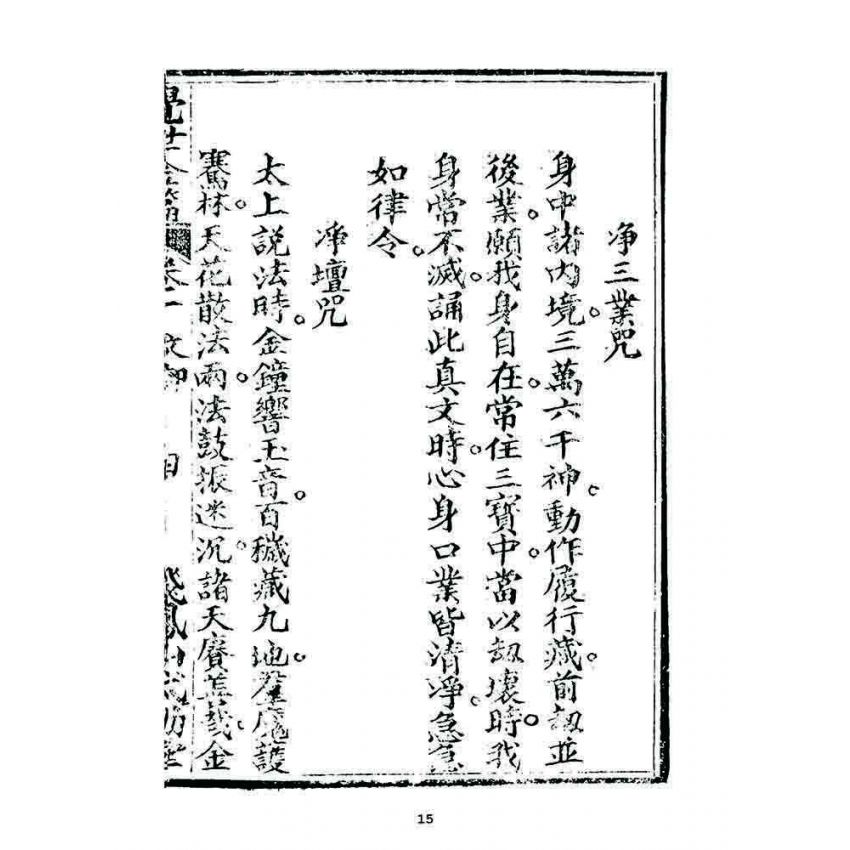 净三業咒
身中諸內境。三萬六千神。動作履行藏。前劫並
後業。願我身自在。常住三寶中。當以劫壞時。我
身常不滅。誦此真文時。心身口業皆清淨。急急
如律令。
净壇咒
太上說法時。金鐘響玉音。百穢藏九地。羣魔護
騫林。天花散法雨。法鼓振迷沉。諸天賡善哉。金
覺世金篇 卷二
15